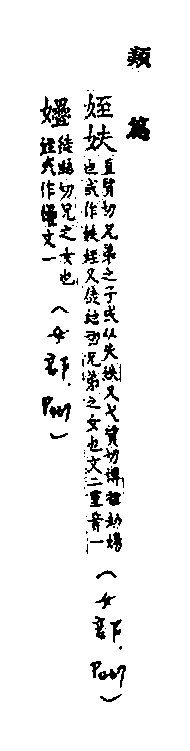 類篇
姪妷直質切兄弟之子或从失妷又弋質切博雅劮婸
也或作妷姪又徒結切兄弟之女也文二重音一(女部.
徒結切兄之女也
姪或作文一(女部.